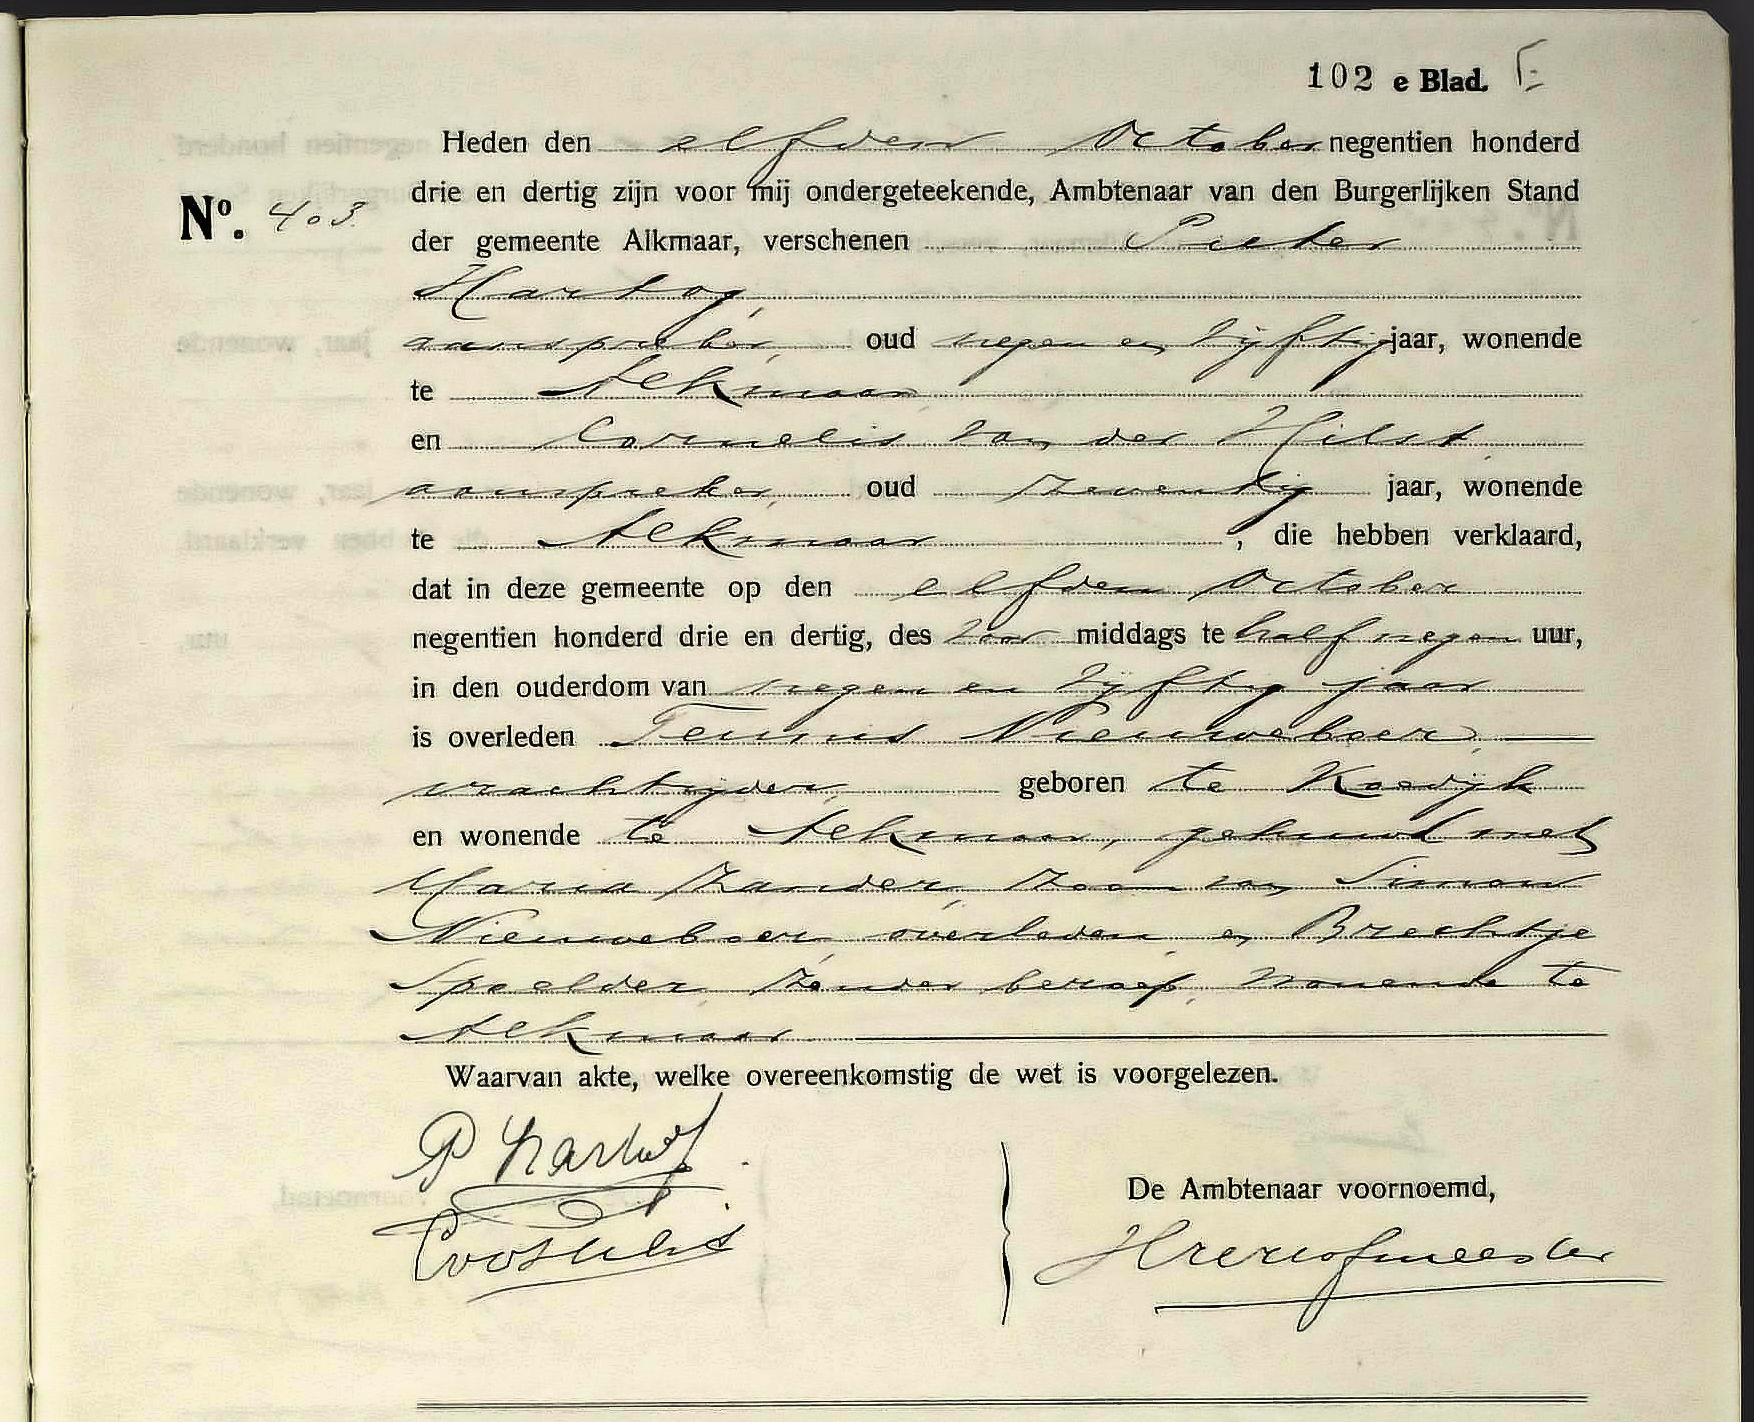 102 e Blad.
Heden den elfden October negentien honderd
drie en dertig zijn voor mij ondergeteekende, Ambtenaar van den Burgerlijken Stand
No. 403.
der gemeente Alkmaar, verschenen Pieter
Hartog,
aanspreker, oud negen en vijftig jaar, wonende
te Alkmaar
en Cornelis van der Hilst,
aanspreker, oud zeventig jaar, wonende
te Alkmaar, die hebben verklaard,
dat in deze gemeente op den elfden October
negentien honderd drie en dertig, des voor middags te half negen uur,
in den ouderdom van negen en vijftig jaar
is overleden Teunis Nieuweboer,
vrachtrijder, geboren te Koedijk
en wonende te Alkmaar, gehuwd met
Maria Zander, zoon van Simon
Nieuweboer, overleden, en Brechtje
Speelder, zonder beroep, wonende te
Alkmaar
Waarvan akte, welke overeenkomstig de wet is voorgelezen.
P Hartog
De Ambtenaar voornoemd,